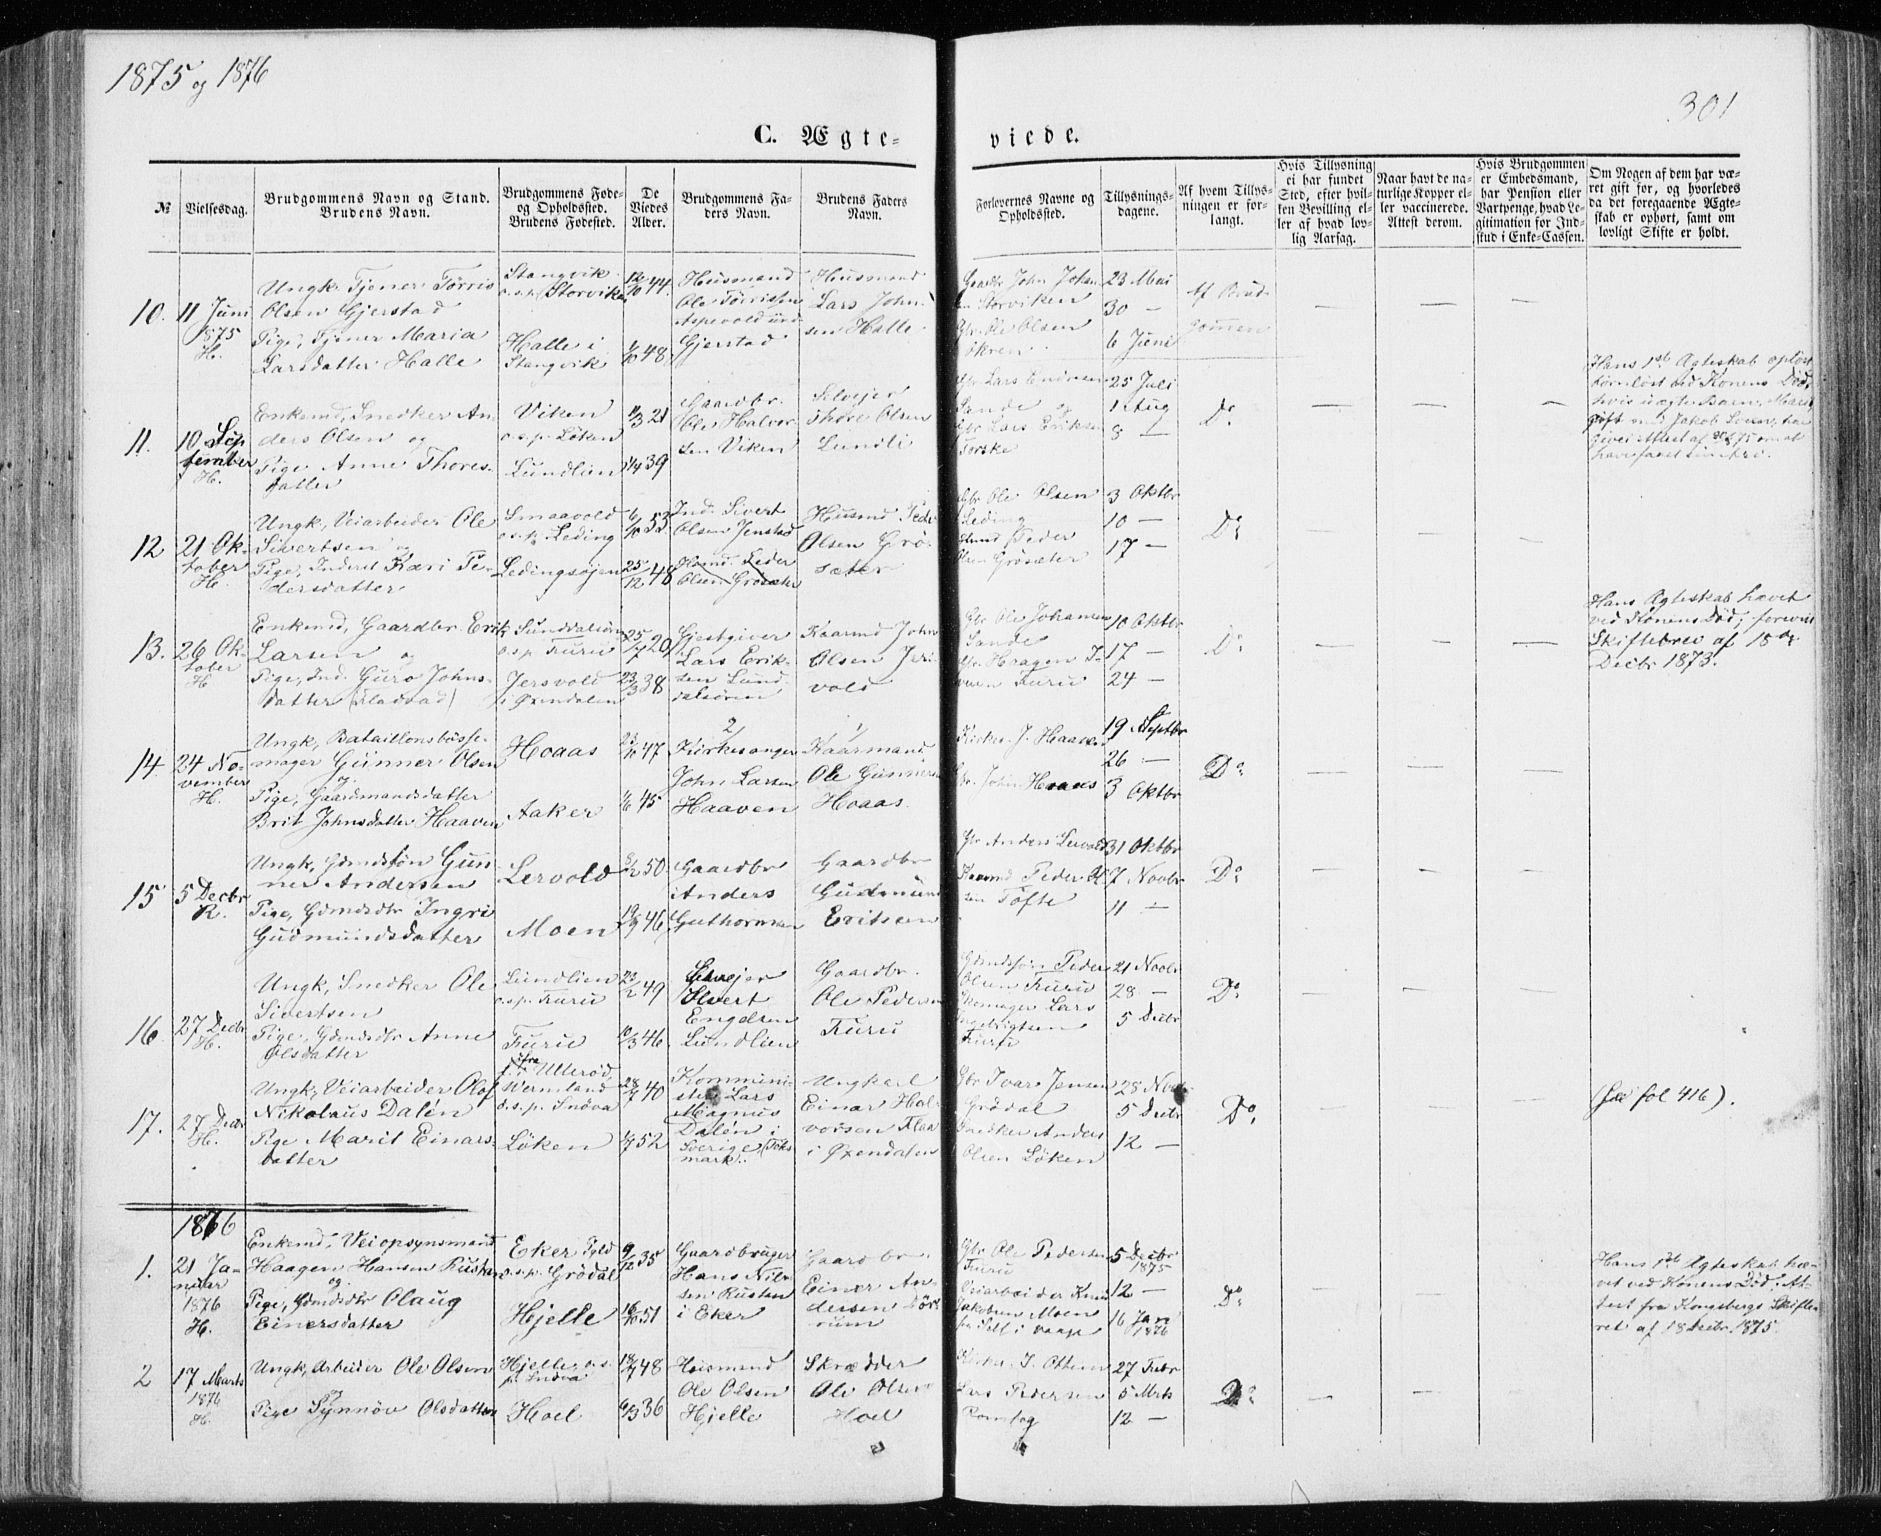 1875 og 1876
301
C. Ægte-
viede.
№
Vielsesdag.
Brudgommens Navn og Stand.
Brudens Navn.
Brudgommens Føde-
og Opholdssted.
Brudens Fødested.
De
Viedes
Alder.
Brudgommens Fa-
ders Navn.
Brudens Faders
Navn.
Forlovernes Navne og
Opholdssted.
Tillysnings-
dagene.
Af hvem Tillys-
ningen er for-
langt.
Hvis Tillysning
ei har fundet
Sted, efter hvil-
ken Bevilling el-
ler af hvad lov-
lig Aarsag.
Naar havt de na-
turlige Kopper el-
ler vaccinerede.
Attest derom.
Hvis Brudgommen
er Embedsmand,
har Pension eller
Vartpenge, hvad Le-
gitimation for Ind-
stud i Enke-Cassen.
Om Nogen af dem har væ-
ret gift før, og hvorledes
da det foregaaende Ægte-
skab er ophørt, samt om
lovligt Skifte er holdt.
10.
11 Juni
1875
H.
Ungk. Tjener Tørris
Olsen Gjerstad
Pige, Tjener Maria
Larsdatter Halle
Stangvik
o.s.p. Storviken
Halle i
Stangvik
12/10 44
1/10 48
Husmand
Ole Tørrisen
Gjerstad
Husmand
Lars John-
sen Halle
Gaardbr John Johan
sen Storviken
Gbr. Ole Olsen
Økren
23 Mai
30 —
6 Juni
Af Brud
gommen
11.
10 Sep
tember
H.
Enkemd, Snedker An-
ders Olsen og
Pige Anne Thores-
datter
Viken
o.s.p. Løken
Lundlien
1/3 21
1/4 39
Gaardbr.
Ole Halvor
sen Viken
Selveier
Thore Olsen
Lundli
Gbr Lars Endresen
Sande og
Gbr Lars Eriksen
Torske
25 Juli
1 Aug
8 —
Do
Hans 1ste Ægteskab opløst
børnløst ved Konens Død,
12
21 Ok-
tober
H.
Ungk, Veiarbeider Ole
Sivertsen og
Pige, Inderst Kari Pe-
dersdatter
Smaavold
o.s.p. Leding
Ledingsøjen
6/10 53
25/12 48
Ind. Sivert
Olsen Jenstad
Husmd. Peder
Olsen Grøsæter
Husmd Peder
Olsen Grø-
sæter
Gbr Ole Olsen
Leding
Husmd Peder
Olsen Grøsæter
3 Oktbr
10 —
17 —
Do
13.
26 Ok-
tober
H.
Enkemd, Gaardbr. Erik
Larsen og
Pige, Ind. Guro Johns-
datter (Fladvad)
Sunddalsøren
o.s.p. Furu
Jersvold
i Øxendalen
25/7 20
23/3 38
Gjestgiver
Lars Erik-
sen Sund-
dalsøren
Kaarmd John
Olsen Jers-
vold
Gbr Ole Johansen
Sande
Gbr. Haagen I-
versen Furu
10 Oktbr
17 —
24 —
Do
Hans Ægteskab hævet
ved Konens Død, forevist
Skiftebrev af 18de
Decbr 1873.
14.
24 No-
vember
H.
Ungk, Bataillonsbøsse-
mager Gunner Olsen
og
Pige, Gaardmandsdatter
Brit Johnsdatter Haaven
Hoaas
Aaker
23/11 47
1/6 45
2/
Kirkesanger
John Larsen
Haaven
1/
Kaarmand
Ole Gunnersen
Hoaas.
Kirkes. J. Haaven
Gbr. John Hoaas
19 Septbr
26 —
3 Oktbr
Do
15
5 Decbr
K.
Ungk, Gdmdssøn Gun-
ner Andersen
Pige, Gdmdsdtr Ingri
Gudmundsdatter
Lervold
Moen
8/2 50
19/9 46
Gaardbr
Anders
Guthormsen
Gaardbr
Gudmund
Eriksen
Gbr Anders Lervold
Kaarmd Peder Ol
sen Tofte
31 Oktbr
7 Novbr
11 —
Do
16
27 Decbr
H.
Ungk, Snedker Ole
Sivertsen
Pige, Gdmdsdtr Anne
Olsdatter
Lundlien
o.s.p. Furu
Furu
23/2 49
10/3 46
Selvejer
Sivert
Engelsen
Lundlien
Gaardbr.
Ole Pedersen
Furu
Gdmdssøn Peder
Olsen Furu
Skomager Lars
Ingebrigtsen
Furu
21 Novbr
28 —
5 Decbr
Do
17.
27 Decbr
H.
Ungk, Veiarbeider Olof
Nikolaus Dalén
Pige Marit Einars-
datter
fra Ullerød,
Wermland
o.s.p. Snøva
Løken
28/7 40
4/7 52
Kommini-
ster Lars
Magnus
Dalén i
Sverige (Foks-
mark.
Ungkarl
Einar Hal-
vorsen Flaa
i Øxendalen
Gbr Ivar Jensen
Grødal
Snedker Anders
Olsen Løken
28 Novbr
5 Decbr
12 —
Do
(Se fol 416).
1876
1.
21 Ja-
nuar
1876
H.
Enkemd, Veiopsynsmand
Haagen Hansen Rustan
og
Pige, Gdmdsdtr Olaug
Einersdatter
Eker Fgld
o.s.p. Grødal
Hjelle
9/12 35
16/10 51
Gaardbruger
Hans Nils-
sen Rusten
i Eker
Gaardbr.
Einer An-
dersen Dør-
rum
Gbr Ole Pedersen
Furu
Veiarbeider Knut
Jakobsen Moen
5 Decbr
1875
12 —
16 Jan
1876
Do
Hans 1ste Ægteskab hæ-
vet ved Konens Død. At-
test fra Kongsbergs Skifte-
ret af 18 Decbr. 1875.
2
17 Marts
1876
H.
Ungk, Arbeider Ole Olsen
og
Pige Synnøv Olsdatter
Hjelle o.s.
p. Snøva
Hoel
18/7 48
6/3 36
Husmand
Ole Olsen
Hjelle
Skrædder
Ole Olsen
Hoel
Kirkes. I. Ottem
Lars Pedersen
Romfog
27 Febr
5 Mrts
12 —
Do